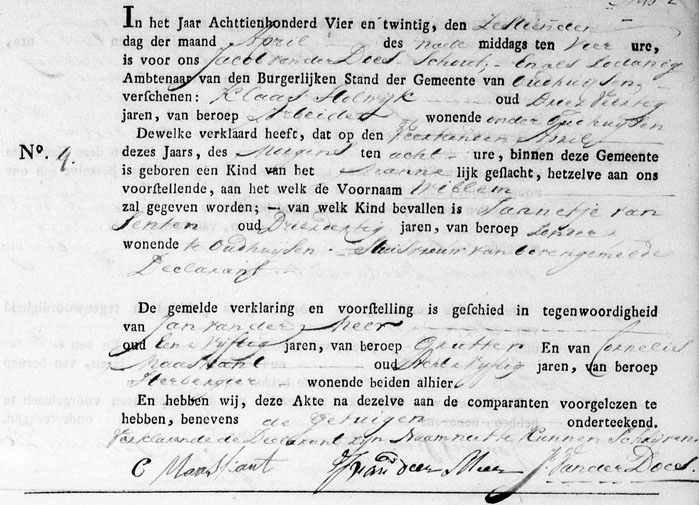 In het Jaar Achttienhonderd Vier en twintig, den Zestienden
dag der maand April des nade middags ten Vier ure,
is voor ons Jacob van der Does, Schout, en als zodanig
Ambtenaar van den Burgerlijken Stand der Gemeente van Oudhuysen,
verschenen: Klaas Holwijk oud Drie Veertig
jaren, van beroep Arbeider wonende onder Oudhuysen
Dewelke verklaard heeft, dat op den Veertienden April
No. 4. dezes Jaars, des Morgens ten acht ure, binnen deze Gemeente
is geboren een Kind van het Manne lijk geslacht, hetzelve aan ons
voorstellende, aan het welk de Voornaam Willem
zal gegeven worden; — van welk Kind bevallen is Jannetje van
Senten oud Drie dertig jaren, van beroep
wonende te Oudhuysen. Huisvrouw van bovengemeede
Declarant
De gemelde verklaring en voorstelling is geschied in tegenwoordigheid
van Jan van der Meer
oud jaren, van beroep En van Cornelis
Maastant oud Vyftig jaren, van beroep
Herbergier wonende beiden alhier.
En hebben wij, deze Akte na dezelve aan de comparanten voorgelezen te
hebben, benevens de Getuigen onderteekend.
Verklarende de Declarant zyn Naam niet te Kunnen Schryven.
C Maastant J van der Meer J. Van der Does.